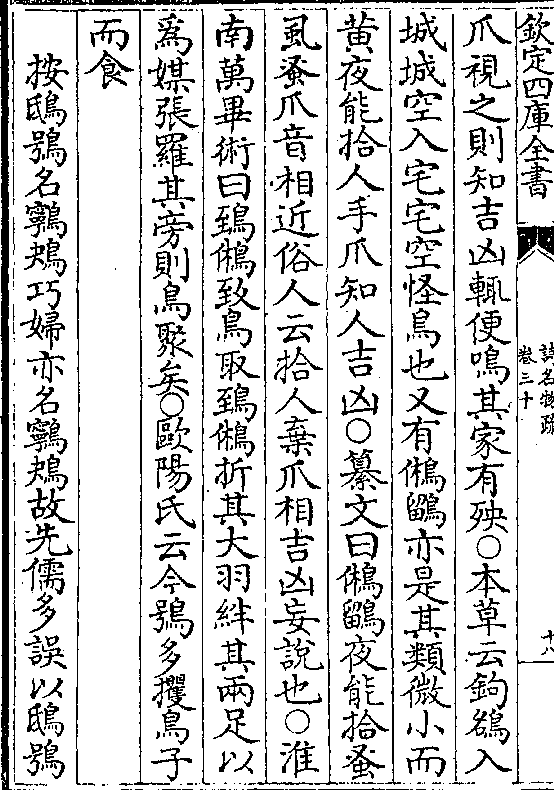 欽定四庫全書
詩名物疏
卷三十
十八
爪視之則知吉凶輒便鳴其家有殃○本草云鉤鵅入
城城空入宅宅空怪鳥也又有鵂鶹亦是其類微小而
黃夜能拾人手爪知人吉凶○纂文曰鵂鶹夜能拾蚤
虱蚤爪音相近俗人云拾人棄爪相吉凶妄說也○淮
南萬畢術曰鵄鵂致鳥取鵄鵂折其大羽絆其兩足以
為媒張羅其旁則鳥聚矣○歐陽氏云今鴞多攫鳥子
而食
按鴟鴞名鸋鴂巧婦亦名鸋鴂故先儒多誤以鴟鴞